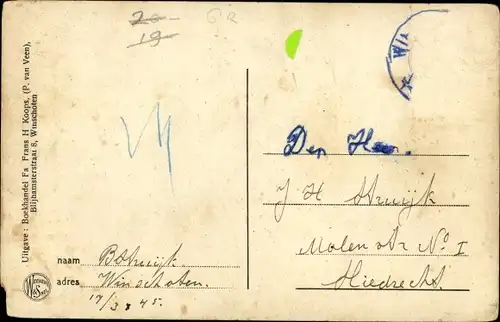 20
19
GR
Win
Uitgave: Boekhandel Fa Frans H Koops, (P. van Veen),
Blijhamsterstraat 8, Winschoten
Den Heer.
J H Struijk
Molen str No I
Miedrecht.
naam BStruijk.
adres Winschoten.
17/3 45.